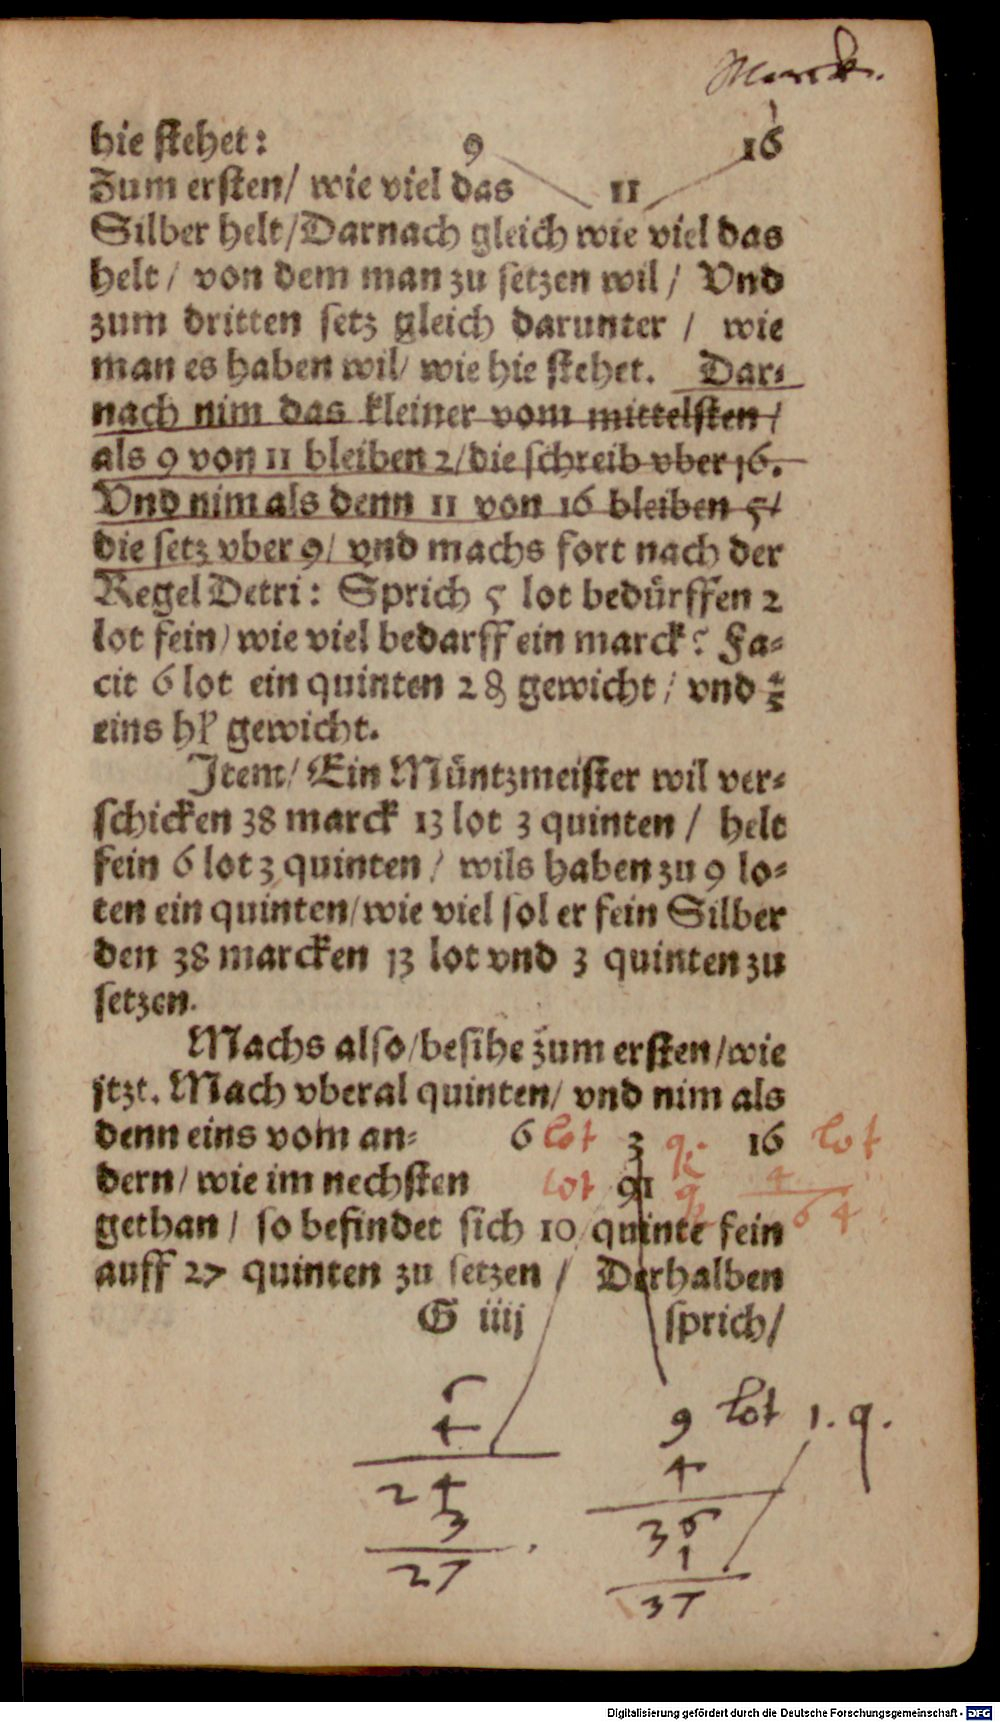 Marck.
hie stehet: 9 16
Zum ersten/ wie viel das 11
Silber helt/Darnach gleich wie viel das
helt/ von dem man zu setzen wil/ Vnd
zum dritten setz gleich darunter / wie
man es haben wil/ wie hie stehet. Dar⸗
nach nim das kleiner vom mittelsten/
als 9 von 11 bleiben 2/die schreib vber 16.
Vnd nim als denn 11 von 16 bleiben 5/
die setz vber 9/ vnd machs fort nach der
Regel Detri: Sprich 5 lot bedürffen 2
lot fein/ wie viel bedarff ein marck? Fa⸗
cit 6 lot ein quinten 2 ₰ gewicht/ vnd 4/5
eins hl gewicht.
Item/ Ein Müntzmeister wil ver⸗
schicken 38 marck 13 lot 3 quinten / helt
fein 6 lot 3 quinten/ wils haben zu 9 lo⸗
ten ein quinten/wie viel sol er fein Silber
den 38 marcken 13 lot vnd 3 quinten zu
setzen.
Machs also/besihe zum ersten/wie
itzt. Mach vberal quinten/ vnd nim als
denn eins vom an⸗ 6 lot 3 q. 16 lot
dern/ wie im nechsten lot 91 q 4
gethan/ so befindet sich 10 quinte fein 64
auff 27 quinten zu setzen / Derhalben
G iiij sprich/
6
4
24
3
27
9 lot 1. q.
4
36
1
37
Digitalisierung gefördert durch die Deutsche Forschungsgemeinschaft - DFG